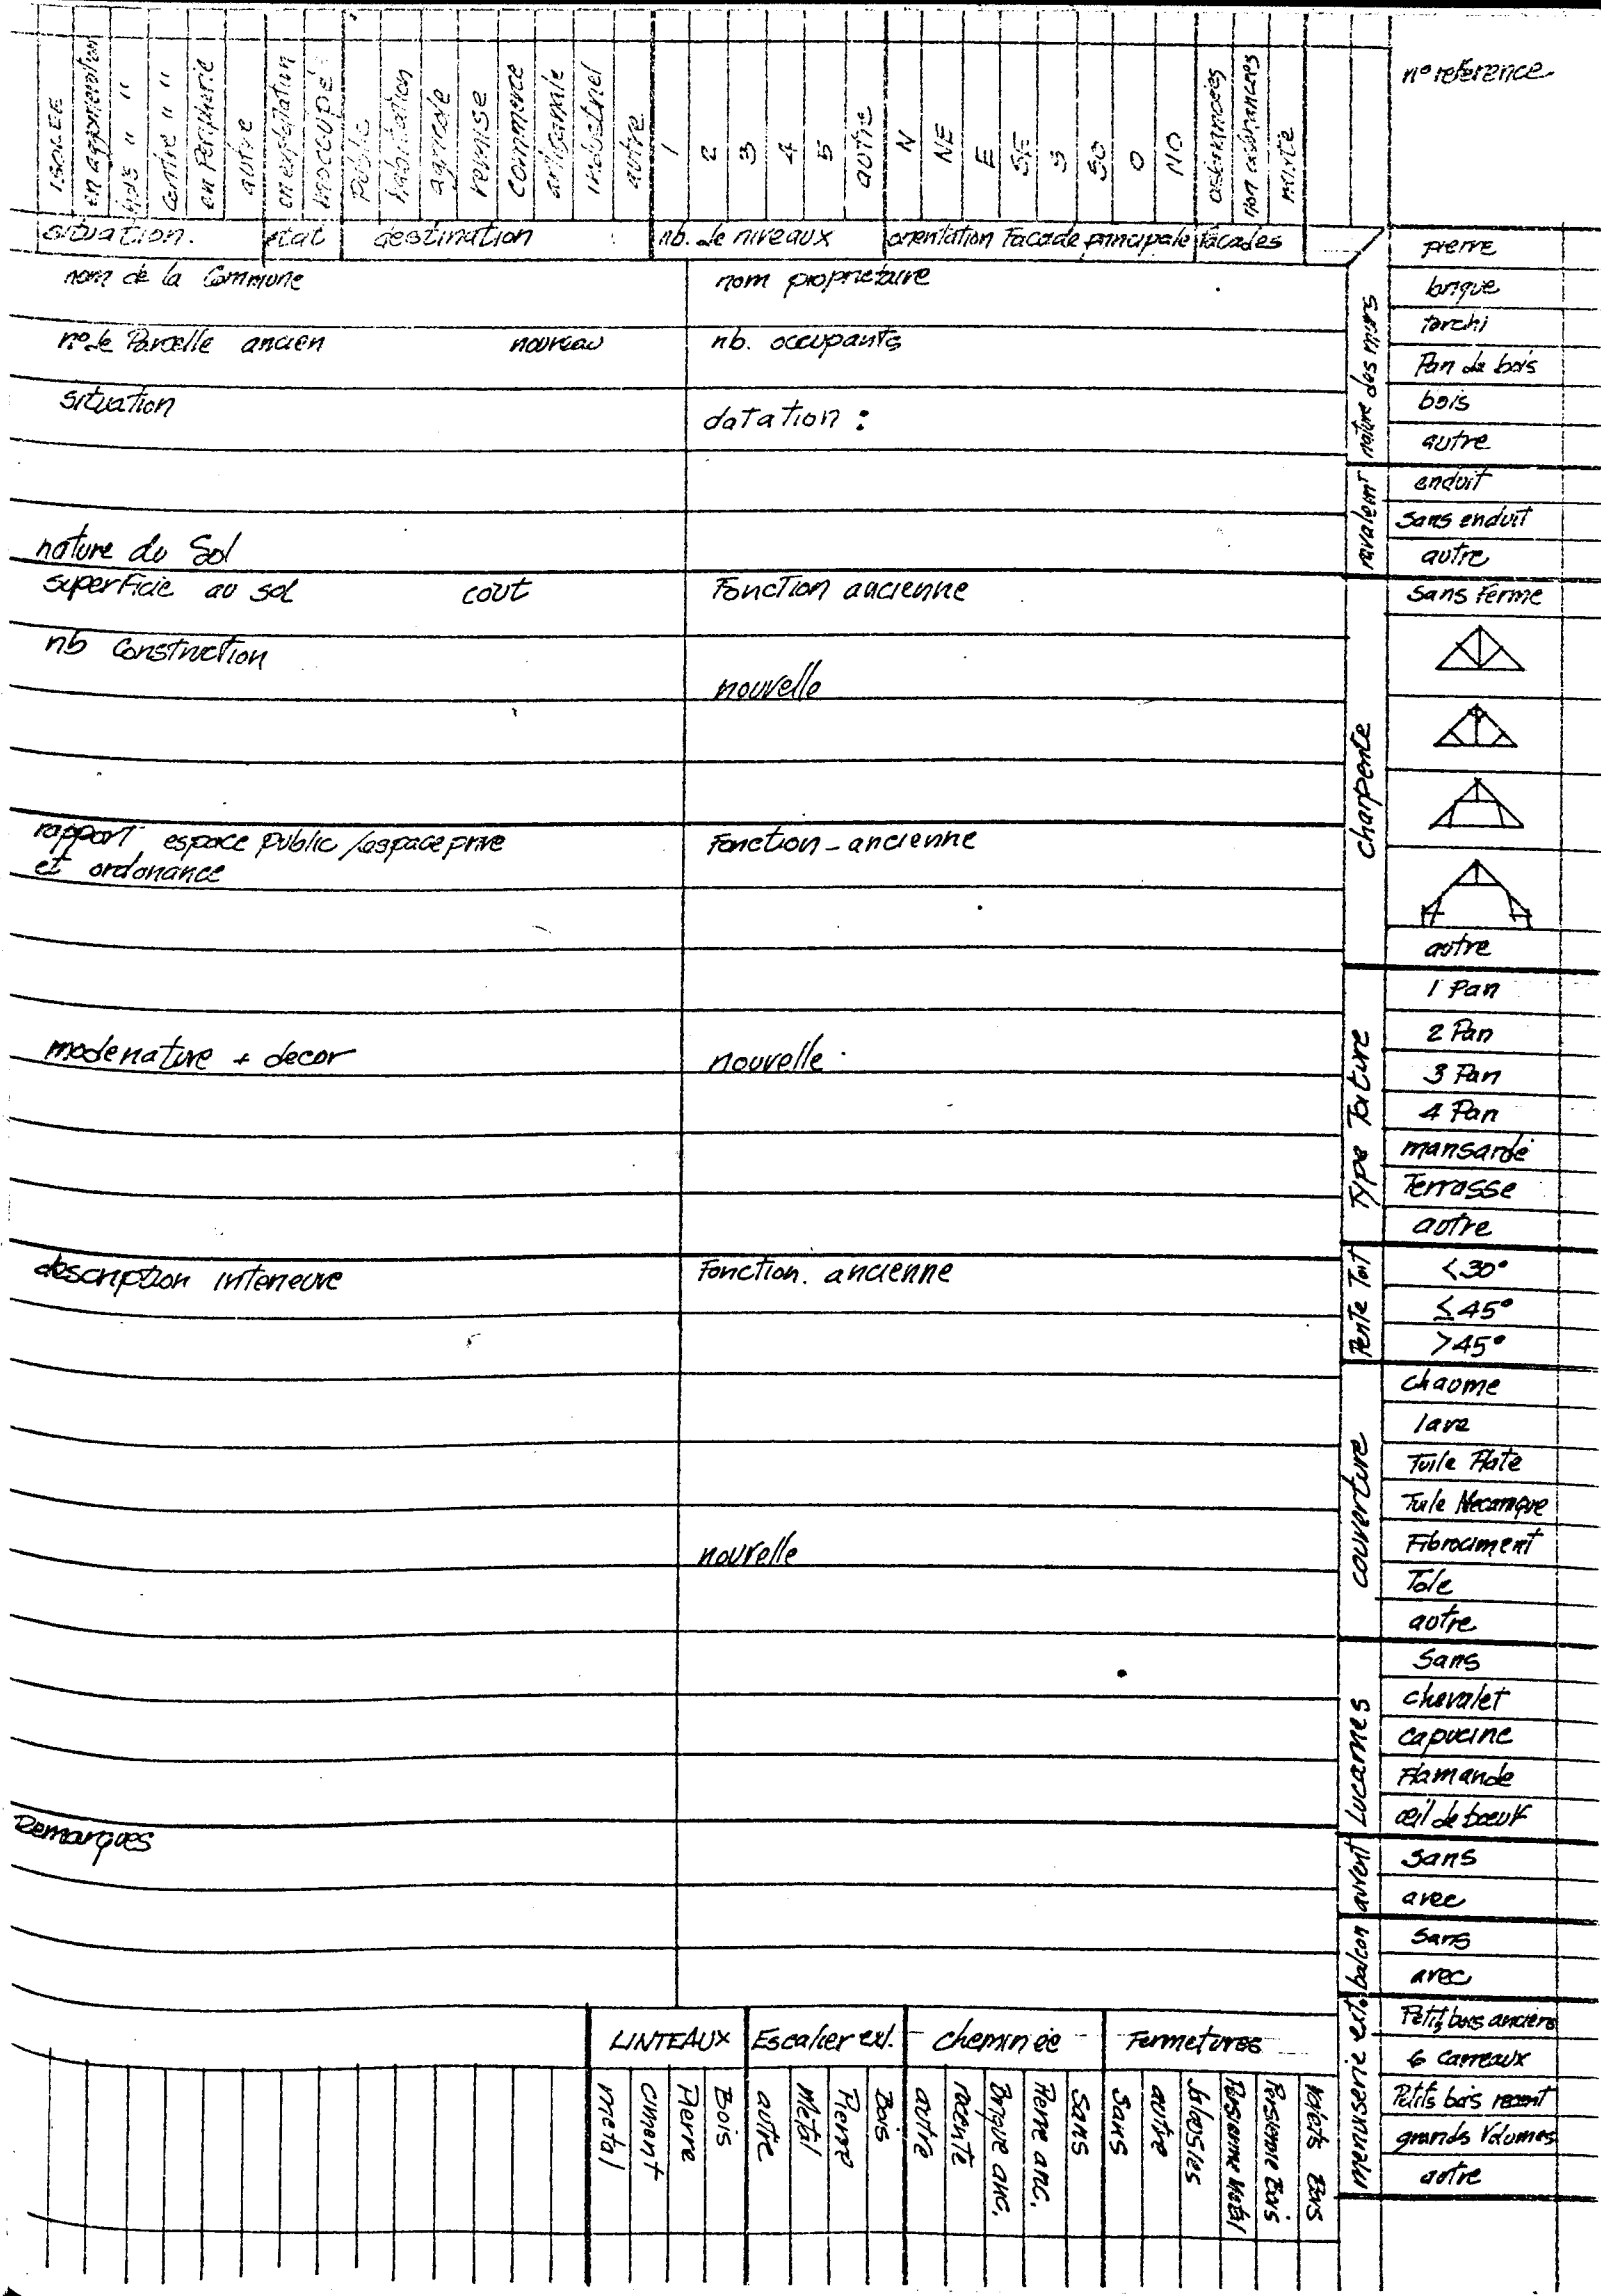 ISOLEE
en agglomeration
hors " "
Centre " "
en Peripherie
autre
en exploitation
inoccupé
Public
habitation
agricole
remise
commerce
artisanale
industriel
autre
1
2
3
4
5
autre
N
NE
E
SE
S
SO
O
NO
ordonnancées
non ordonnancées
mixte
n° reference
situation.
etat
destination
nb. de niveaux
orientation Facade principale
facades
nom de la Commune
nom proprietaire
n° de Parcelle ancien nouveau
nb. occupants
situation
datation :
nature du Sol
superficie au sol cout
Fonction ancienne
nb Construction
nouvelle
rapport espace public / espace prive
et ordonance
Fonction - ancienne
modenature + decor
nouvelle
description interieure
Fonction. ancienne
nouvelle
Remarques
nature des murs
pierre
brique
torchi
Pan de bois
bois
autre
ravalemt
enduit
Sans enduit
autre
charpente
Sans Ferme
autre
Type Toiture
1 Pan
2 Pan
3 Pan
4 Pan
mansarde
Terrasse
autre
Pente Toit
<30°
≤45°
>45°
couverture
chaume
lave
Tuile Plate
Tuile Mecanique
Fibrociment
Tole
autre
Lucarnes
Sans
chevalet
capucine
Flamande
œil de boeuf
auvent
Sans
avec
balcon
Sans
avec
menuiserie ext.
Petits bois anciens
6 carreaux
Petits bois recent
grands Volumes
autre
LINTEAUX
Escalier ext.
cheminée
Fermetures
metal
ciment
Pierre
Bois
autre
Metal
Pierre
Bois
autre
recente
Brique anc.
Pierre anc.
Sans
Sans
autre
Jalousies
Persienne Metal
Persienne Bois
Volets Bois